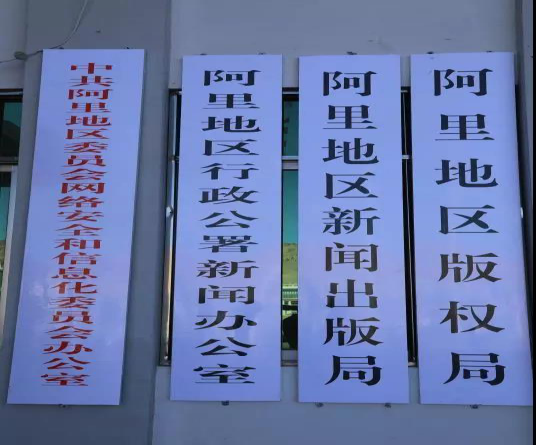 中共阿里地区委员会网络安全和信息化委员会办公室
阿里地区行政公署新闻办公室
阿里地区新闻出版局
阿里地区版权局